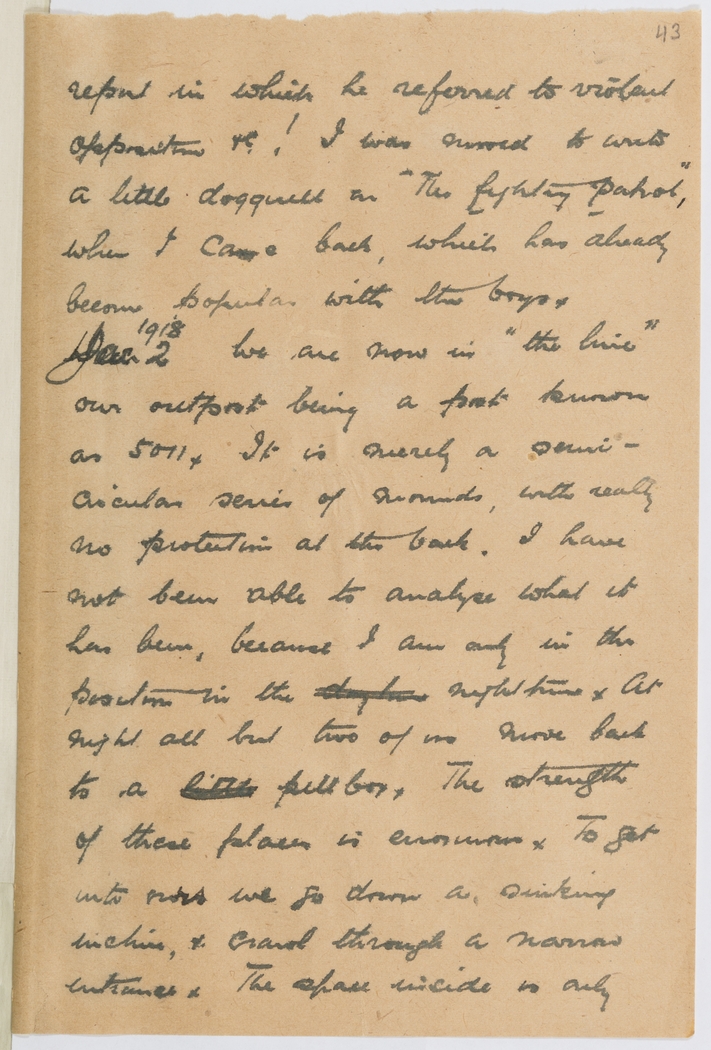 43
report in which he referred to violent
opposition &c.! I was moved to write
a little doggrell on "The fighting patrol",
when I came back, which has already
become popular with the boys.
Jan 2 1918 We are now in "the line"
our outpost being a post known
as 5011. It is merely a semi-
circular series of mounds, with really
no protection at the back. I have
not been able to analyse what it
has been, because I am only in the
position in the daytime nighttime. At
night all but two of us move back
to a little pillbox. The strength
of these places is enormous. To get
into ours we go down a sinking
incline, & crawl through a narrow
entrance. The space inside is only